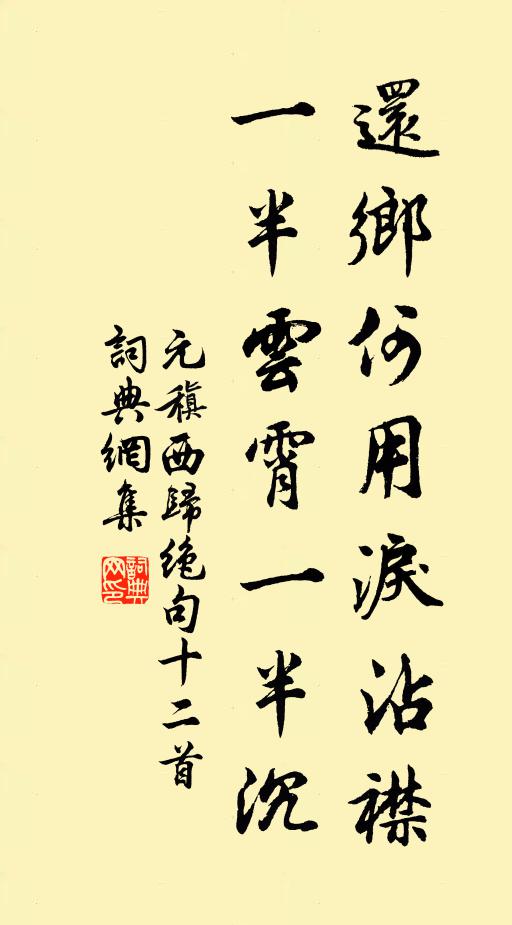 還鄉何用淚沾襟
一半雲霄一半沉
元稹西歸絶句十二首
詞典網集
詞典網印